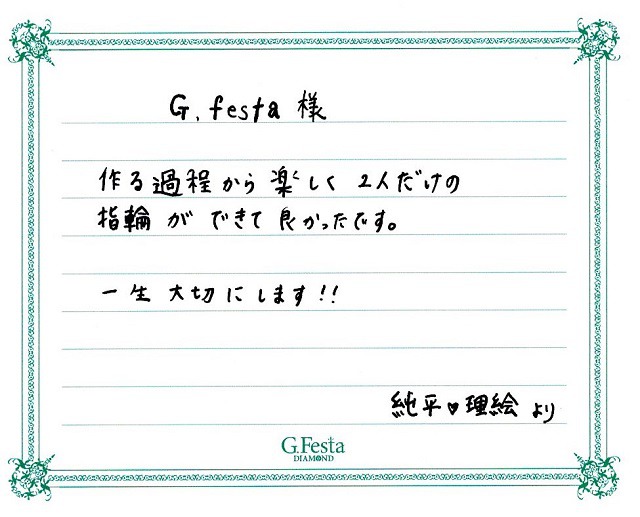 G. festa 様
作る過程から楽しく 2人だけの
指輪が できて 良かったです。
一生 大切にします!!
純平♥理絵 より
G.Festa
DIAMOND